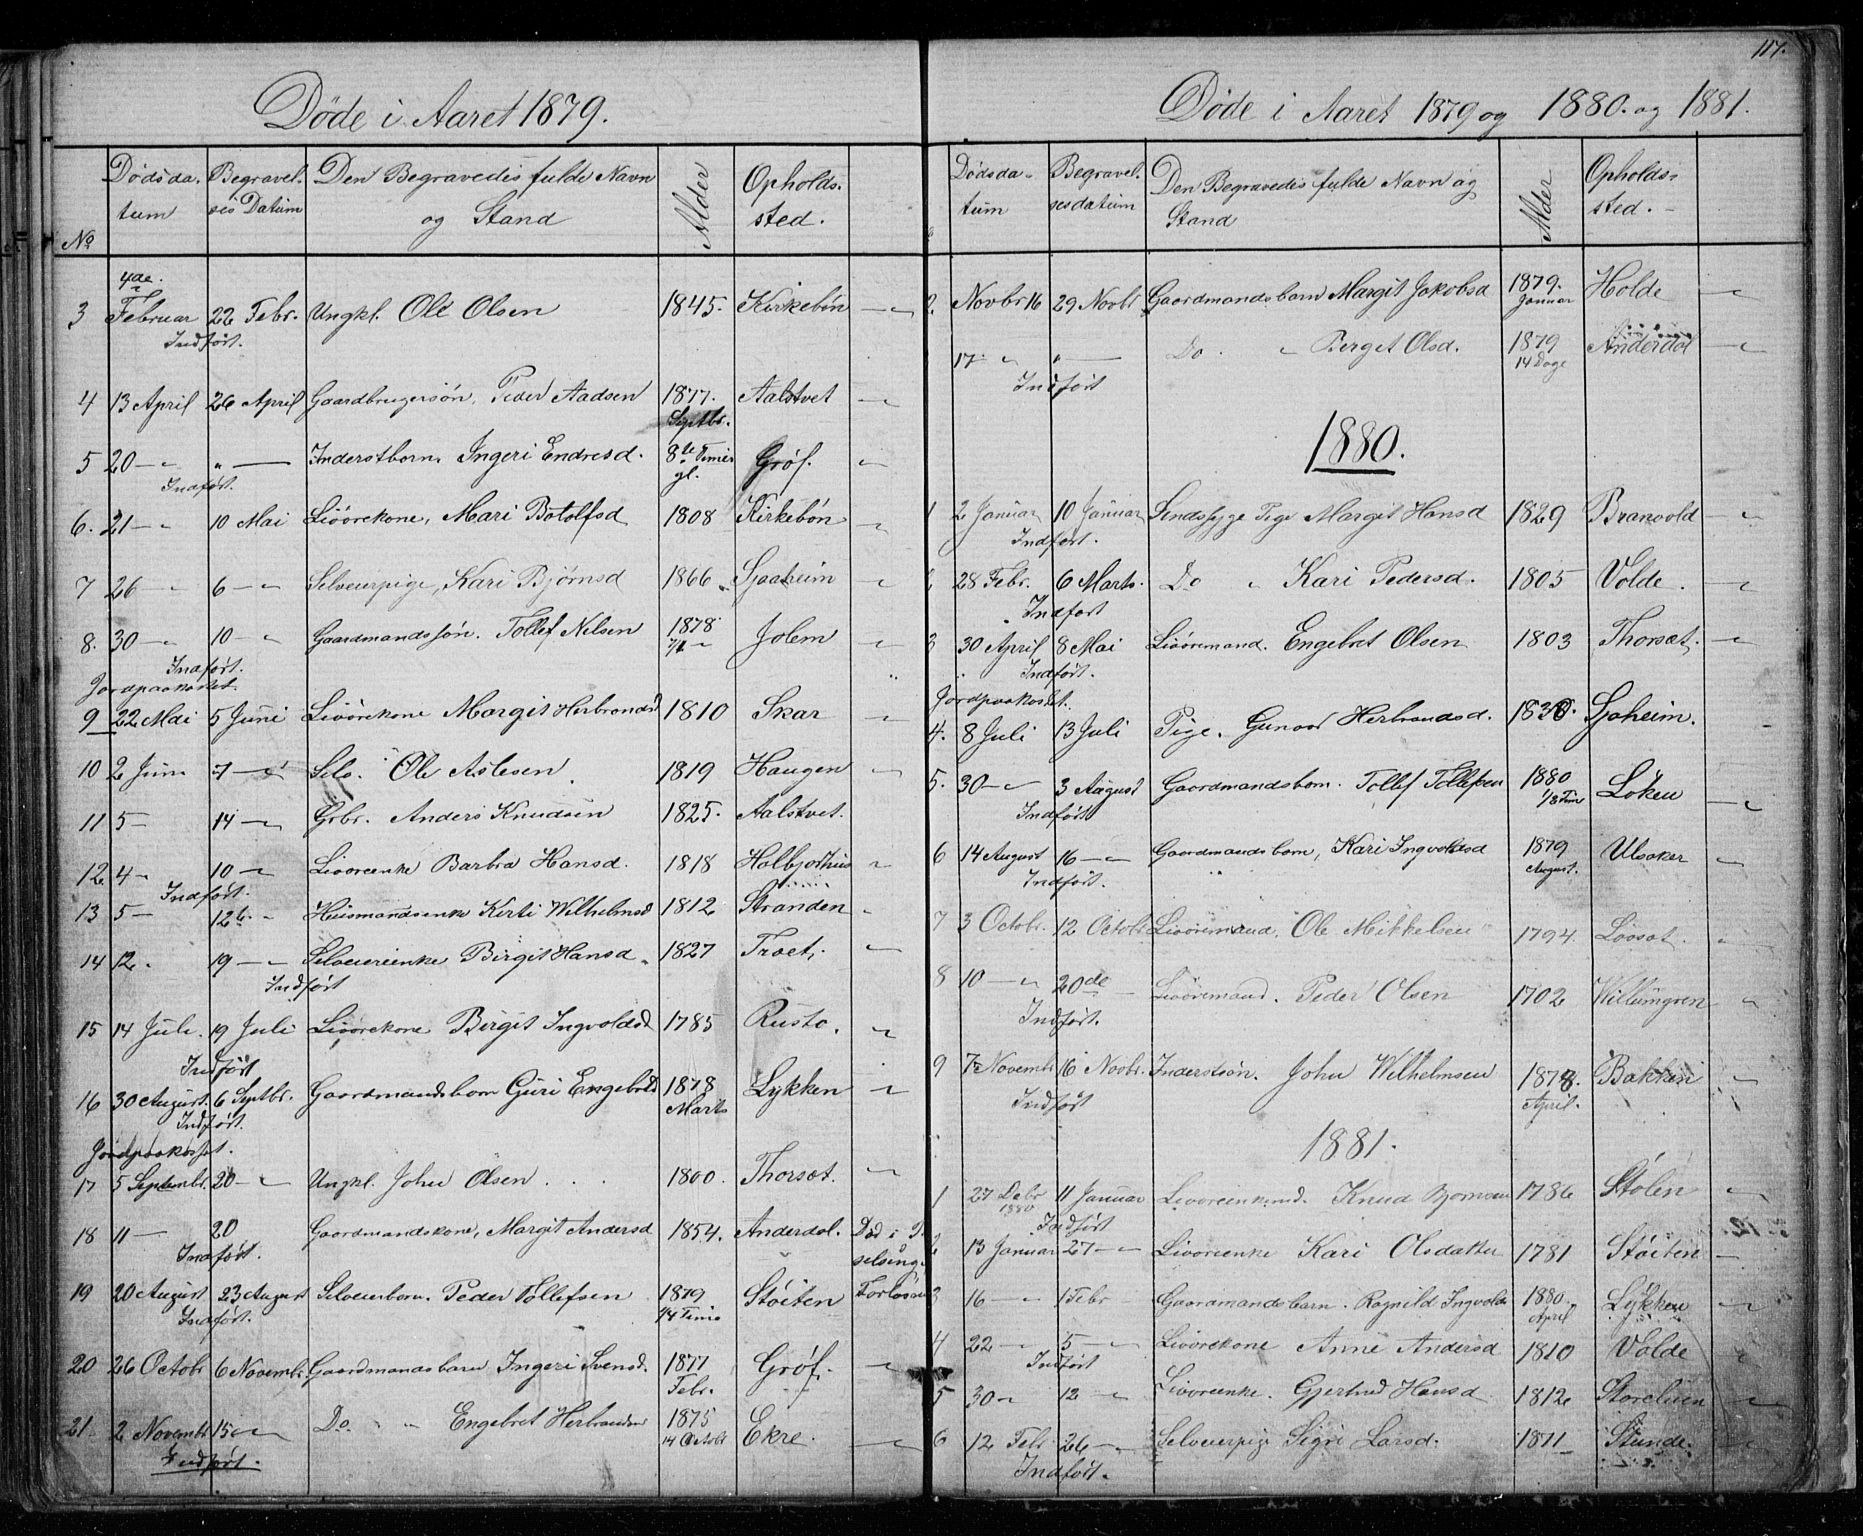 117.
Døde i Aaret 1879.
No Dødsdatum Begravelses Datum Den Begravedes fulde Navn og Stand Alder Opholdssted.
3 4de Februar 22 Febr. Ungkl. Ole Olsen 1845. Kirkebøn
Indført.
4 13 April 26 April Gaardbrugersøn, Peder Aadsen 1877. Septbr. Aalstvet
5 20 — " " — Inderstbarn. Ingeri Endresd. 8te Timer gl. Grøf.
Indført.
6. 21 — " 10 Mai Livørekone, Mari Botolfsd 1808 Kirkebøn
7 26 — " 6 — " Selveierpige, Kari Bjørnsd 1866. Sjaaheim
8. 30 — " 10 — " Gaardmandssøn. Tollef Nilsen 1878 Jolem
Indført.
Jordpaakastet.
9 22 Mai 5 Juni Livørekone Margit Herbrandsd 1810 Skar
10 2 Juni 7 — " Selv. Ole Aslesen 1819 Haugen
11 5 — 14 — " Grbr. Anders Knudsen 1825. Aalstvet.
12 4 — 10 — " Livøreenke Barbra Hansd. 1818 Halbjorhus
Indført.
13 5 — 12 — Husmandsenke Kirti Wilhelmsd 1812 Stranden
14 12 — 19 — " Selveierenke Birgit Hansd. 1827 Troet,
Indført
15 14 Juli. 19 Juli Livørekone Birgit Ingvoldsd 1785 Rusto.
Indført
16 30 August. 6 Septbr. Gaardmandsbarn Guri Engebrtsd 1878 Marts Lykken
Indført.
Jordpaakastet.
17 5 Septembr. 20 — " Ungkl. John Olsen 1800. Thorsæt.
18 11 — 20 Gaardmandskone, Margit Andersd 1854. Anderdal. Død i
Indført.
19 20 August 23 August Selveierbarn. Peder Tollefsen 1879 1/4 Time Støiten
Indført.
20 26 Octobr 6 Novembr. Gaardmandsbarn Ingeri Svensd. 1877 Febr. Grøf.
21 2 Novembr 15 — " Do. " " Engebret Herbrandsen 1875 14 Octobr Ekre.
Indført.
Døde i Aaret 1879 og 1880. og 1881.
Dødsdatum Begravelsesdatum Den Begravedes fulde Navn og Stand Alder Opholdssted.
2 Novbr 16 29 Novbr Gaardmandsbarn Margit Jakobsd 1879. Januar Holde
17 — " " — Do. " Berget Olsd. 1879 14 Dage Anderdal
Indført
1880.
1 2 Januar 10 Januar Sindssyge Pige Margit Hansd 1829 Branvold
Indført.
2 28 Febr. 6 Marts. Do " Kari Pedersd. 1805 Volde.
Indført
3 30 April 8 Mai Livøremand. Engebret Olsen 1803 Thorsæt.
Indført.
Jordpaakastet.
4. 8 Juli 13 Juli Pige. Gunvor Herbrandsd. 1838. Sjoheim.
5. 30 — " 3 August Gaardmandsbarn. Tollef Tollefsen 1880 1/3 Time Løken
Indført
6 14 August 16 — " Gaardmandsbarn, Kari Ingvoldsd 1879 August. Ulsaker
Indført.
7 3 Octobr. 12 Octobr Livøremand, Ole Mikkelsen 1794. Løvsæt.
8 10 — " 20de — Livøremand. Peder Olsen 1702 Willumgren
Indført.
9 7 Novembr 16 Novbr. Inderstsøn. John Wilhelmsen 1878. April. Bakken
Indført
1881.
1 27 Debr 1880 11 Januar Livøreenkemd. Knud Bjørnsen 1786 Stølen
Indført
2 13 Januar 27 — " Livøreenke Kari Olsdatter 1781 Støiten
3 16 — " 1 Febr Gaardmandsbarn. Ragnild Ingvoldsd 1880. April Lykken
4 22 — " 5 — " Livørekone Anne Andersd 1810 Volde
Indført
5 30 — " 12 — " Livøreenke. Gjertrud Hansd 1812 Storeluen
6 12 Febr 26 — " Selveierpige Sigri Larsd. 1811 Stunde.
Indført.